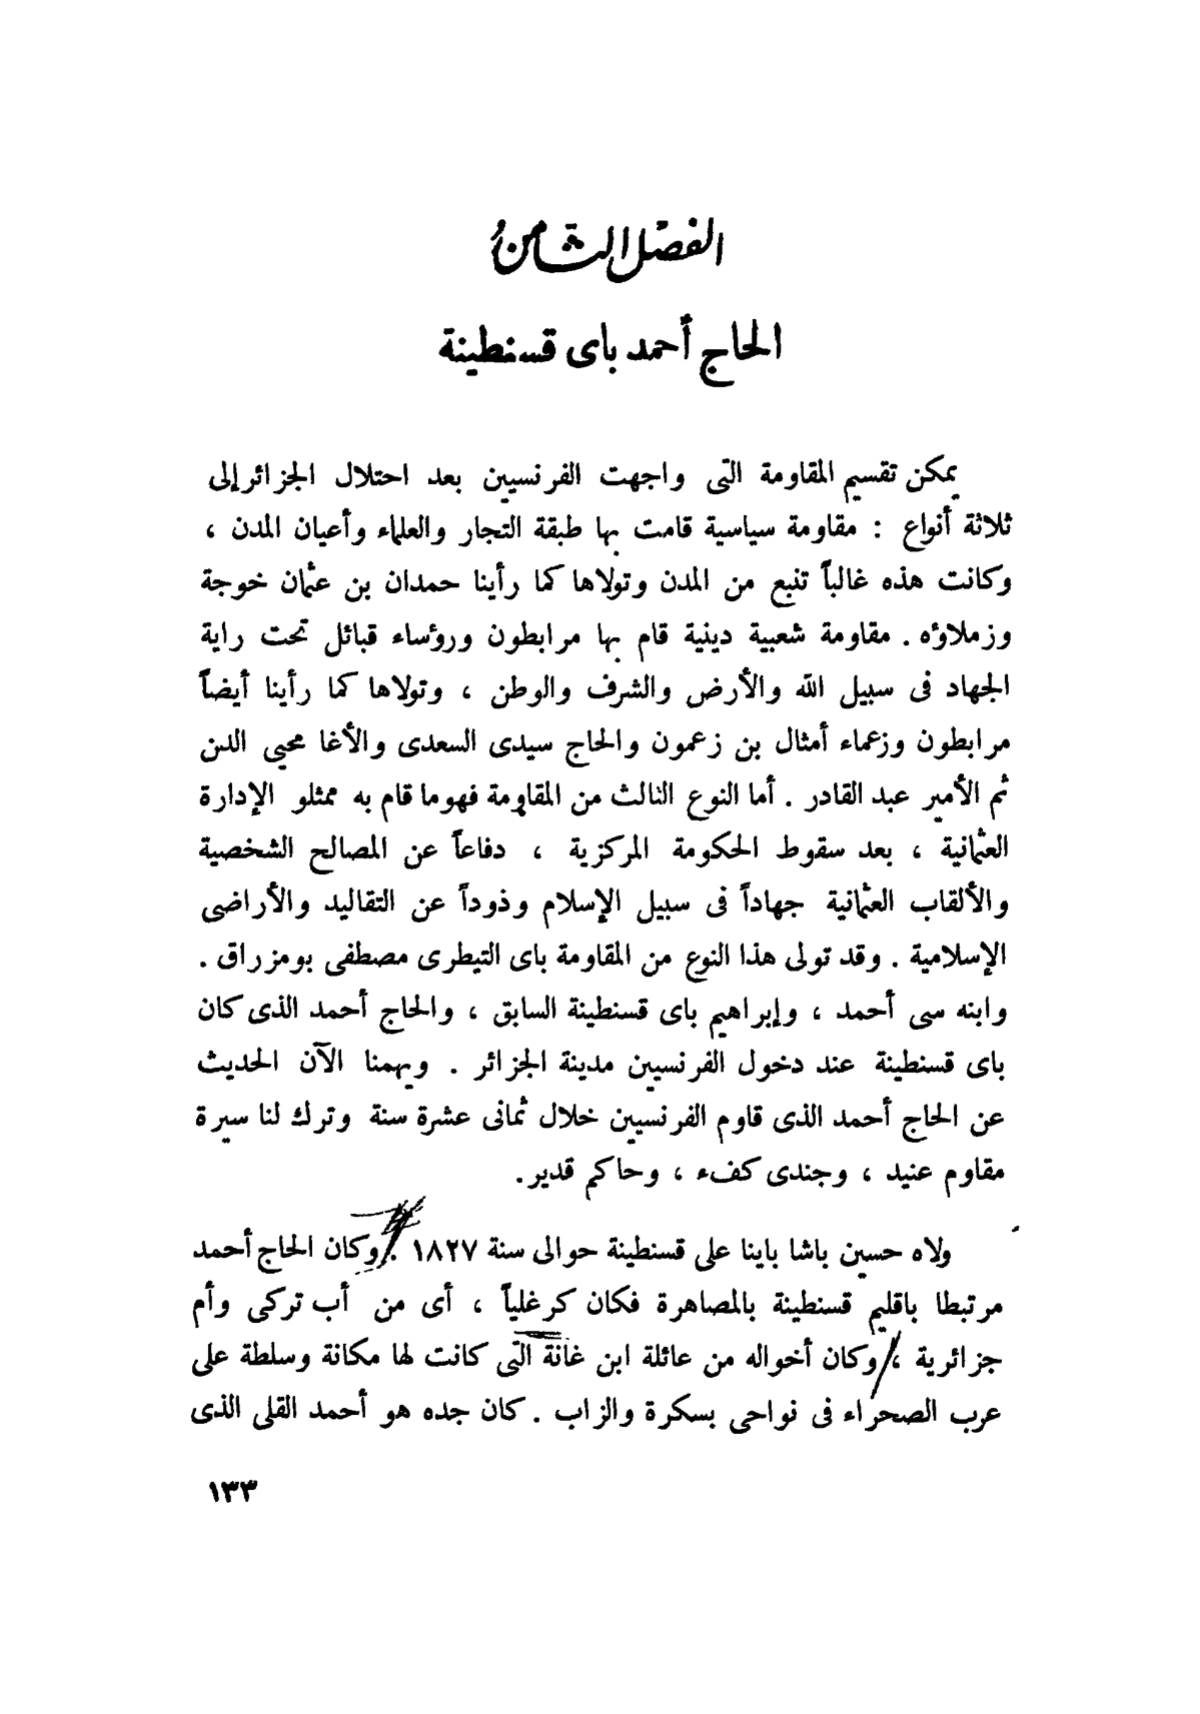 الفصل الثامن
الحاج أحمد باى قسنطينة
يمكن تقسيم المقاومة التى واجهت الفرنسيين بعد احتلال الجزائر إلى
ثلاثة أنواع : مقاومة سياسية قامت بها طبقة التجار والعلماء وأعيان المدن ،
وكانت هذه غالباً تنبع من المدن وتولاها كما رأينا حمدان بن عثمان خوجة
وزملاؤه . مقاومة شعبية دينية قام بها مرابطون ورؤساء قبائل تحت راية
الجهاد فى سبيل الله والأرض والشرف والوطن ، وتولاها كما رأينا أيضاً
مرابطون وزعماء أمثال بن زعمون والحاج سيدى السعدى والأغا محيي الدين
ثم الأمير عبد القادر . أما النوع الثالث من المقاومة فهو ما قام به ممثلو الإدارة
العثمانية ، بعد سقوط الحكومة المركزية ، دفاعاً عن المصالح الشخصية
والألقاب العثمانية جهاداً فى سبيل الإسلام وذوداً عن التقاليد والأراضى
الإسلامية . وقد تولى هذا النوع من المقاومة باى التيطرى مصطفى بومزراق .
وابنه سى أحمد ، وإبراهيم باى قسنطينة السابق ، والحاج أحمد الذى كان
باى قسنطينة عند دخول الفرنسيين مدينة الجزائر . ويهمنا الآن الحديث
عن الحاج أحمد الذى قاوم الفرنسيين خلال ثمانى عشرة سنة وترك لنا سيرة
مقاوم عنيد ، وجندى كفء ، وحاكم قدير.
ولاه حسين باشا باينا على قسنطينة حوالى سنة ١٨٢٧ . وكان الحاج أحمد
مرتبطا باقليم قسنطينة بالمصاهرة فكان كرغلياً ، أى من أب تركى وأم
جزائرية ، وكان أخواله من عائلة ابن غانة التى كانت لها مكانة وسلطة على
عرب الصحراء فى نواحى بسكرة والزاب . كان جده هو أحمد القلى الذى
١٣٣